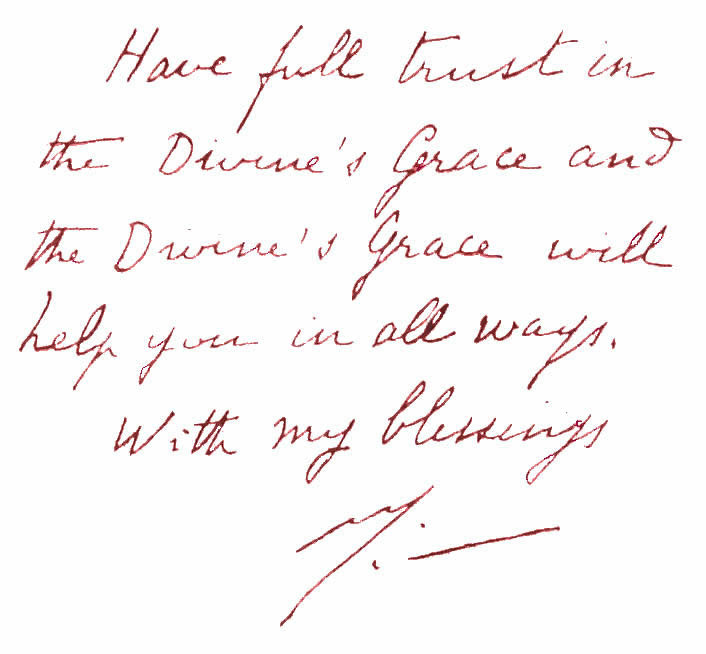 Have full trust in
the Divine's Grace and
the Divine's Grace will
help you in all ways.
With my blessings